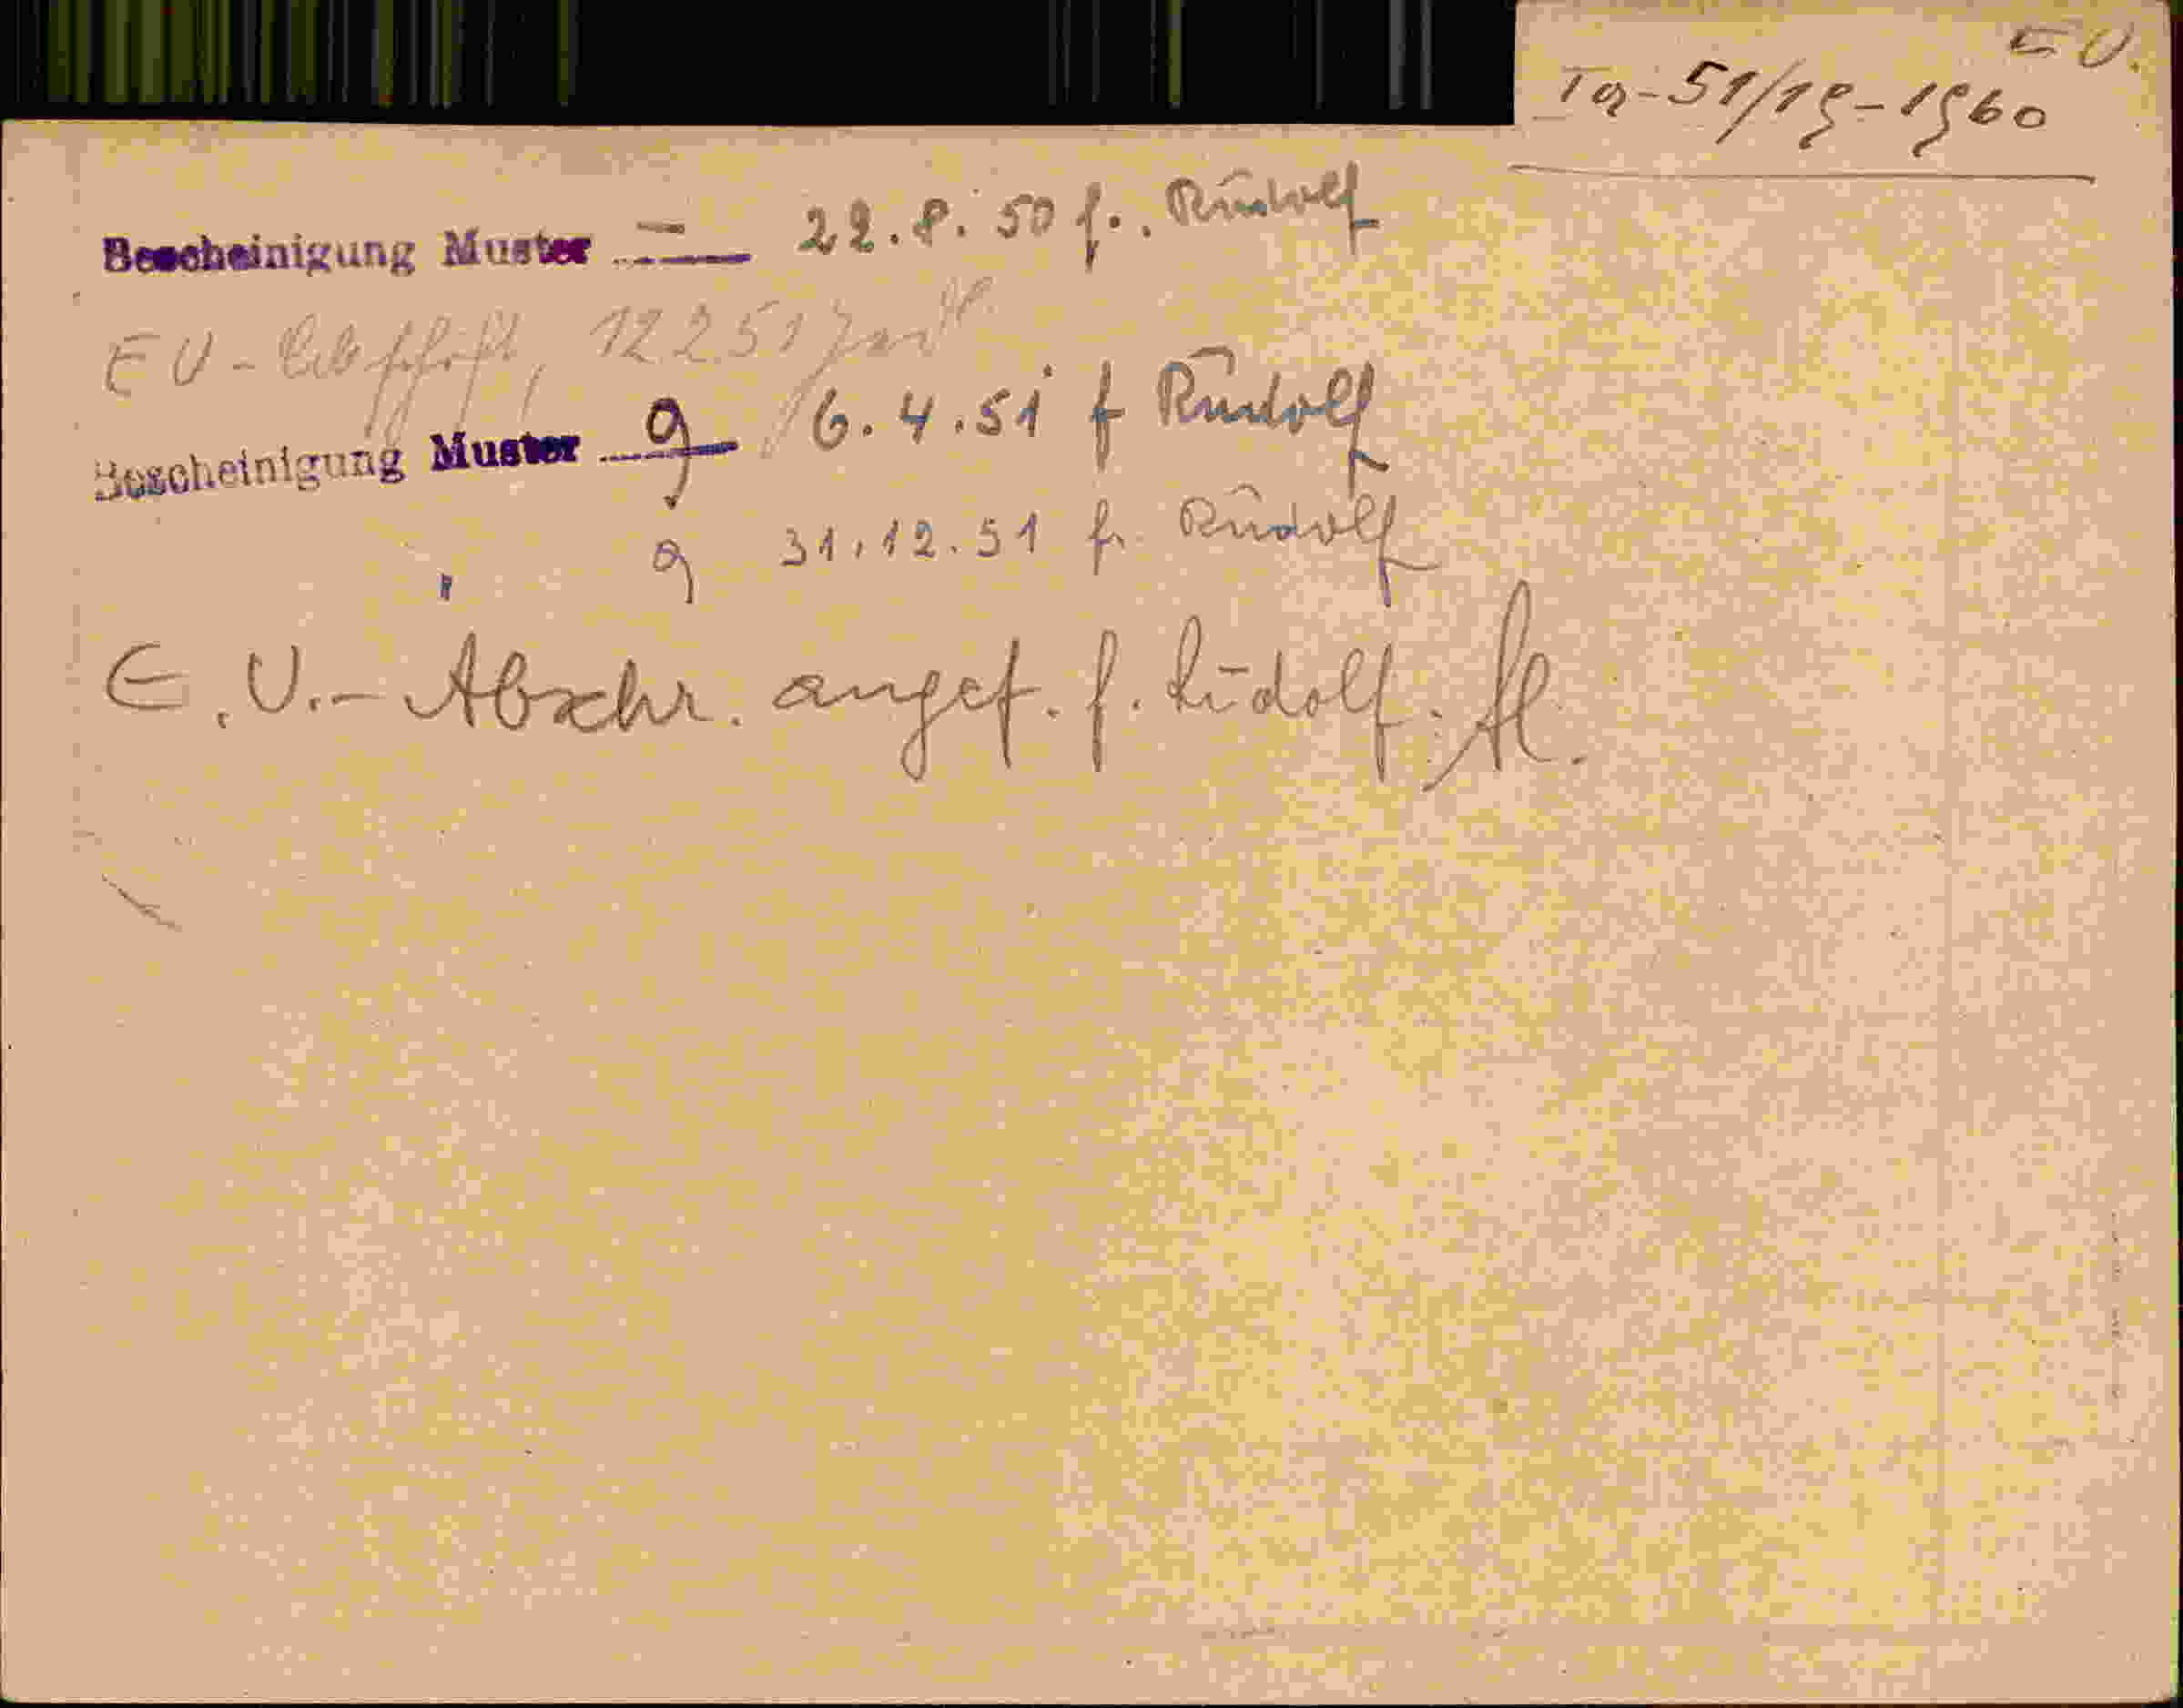 E U.
Ta-51/19-1960
Bescheinigung Muster — 22.8.50 f. Rudolf
EU- 12251
Bescheinigung Muster g 6.4.51 f Rudolf
" g 31.12.51 f. Rudolf
E.U.- Abschr. angef. f. Rudolf.